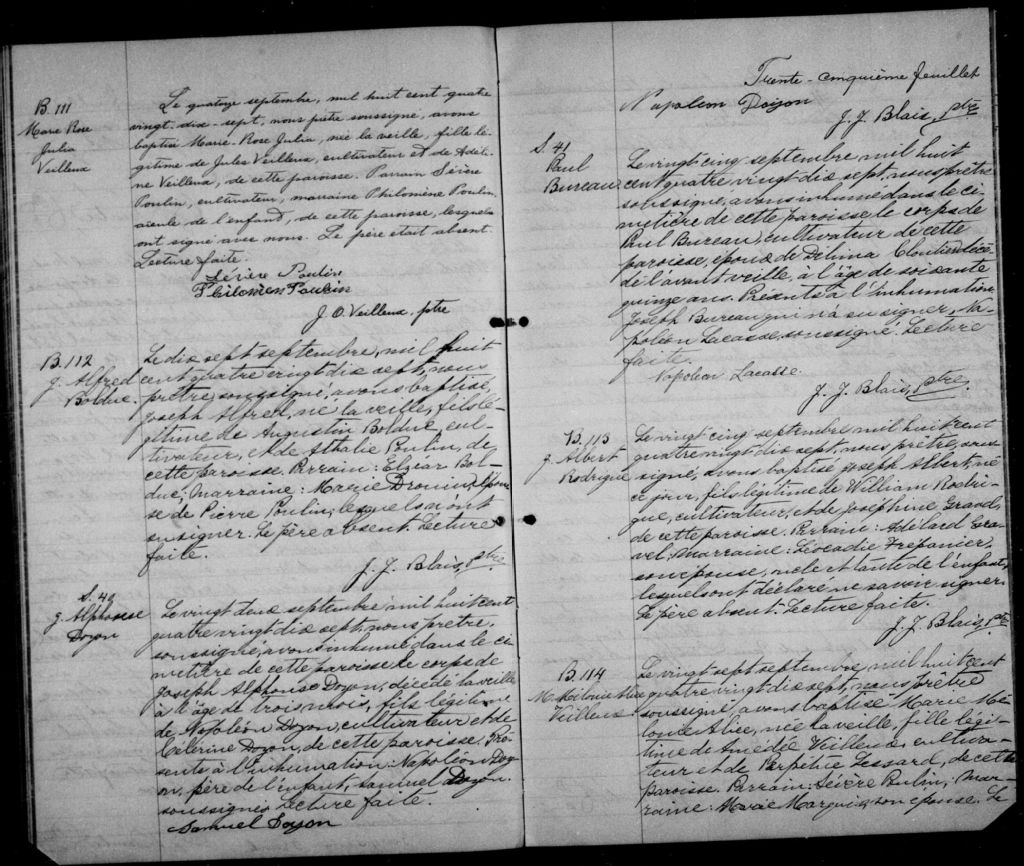 B. 111
Marie Rose
Julia
Veilleux
Le quatorze septembre, mil huit cent quatre
vingt-dix-sept, nous prêtre soussigné, avons
baptisé Marie-Rose Julia, née la veille, fille lé-
gitime de Jules Veilleux, cultivateur et de Adéli-
ne Veilleux, de cette paroisse. Parrain Sévère
Poulin, cultivateur, marraine Philomène Poulin,
aïeule de l'enfant, de cette paroisse, lesquels
ont signé avec nous. Le père était absent.
Lecture faite.
Sévère Poulin
Philomen Poulin
J. O. Veilleux, ptre
B. 112
J. Alfred
Bolduc.
Le dix sept septembre, mil huit
cent quatre vingt dix sept, nous
prêtre, soussigné, avons baptisé,
Joseph Alfred, né la veille, fils lé-
gitime de Augustin Bolduc, cul-
tivateur, et de Athalie Poulin, de
cette paroisse. Parrain: Elzear Bol-
duc; marraine: Marie Drouin, épou-
se de Pierre Poulin; lesquels n'ont
su signer. Le père absent. Lecture
faite.
J. J. Blais, ptre
S. 40
J. Alphonse
Doyon
Le vingt deux septembre mil huit cent
quatre vingt dix sept, nous prêtre,
soussigné, avons inhumé dans le ci-
metière de cette paroisse le corps de
Joseph Alphonse Doyon, décédé la veille
à l'âge de trois mois, fils légitime
de Napoléon Doyon, cultivateur et de
Célerine Doyon, de cette paroisse. Pré-
sents à l'inhumation: Napoléon Doy-
on, père de l'enfant, Samuel Doyon.
soussignés. Lecture faite.
Samuel Doyon
Trente-cinquième feuillet
Napoleon Doiyon
J. J. Blais, ptre
S. 41
Paul
Bureau
Le vingt cinq septembre mil huit
cent quatre vingt dix sept, nous prêtre
soussigné, avons inhumé dans le ci-
metière de cette paroisse le corps de
Paul Bureau, cultivateur de cette
paroisse, époux de Delima Cloutier décé-
dé l'avant veille, à l'âge de soixante
quinze ans. Présents à l'inhumation
Joseph Bureau qui n'a su signer, Na-
poléon Lacasse, soussigné. Lecture
faite.
Napoleon Lacasse.
J. J. Blais, ptre
B. 113
J. Albert
Rodrigue
Le vingt cinq septembre mil huit cent
quatre vingt dix sept, nous prêtre, sous-
signé, avons baptisé Joseph Albert, né
ce jour, fils légitime de William Rodri-
gue, cultivateur, et de Joséphine Grand,
de cette paroisse. Parrain: Adélard Gra-
vel; marraine: Léocadie Trépanier,
son épouse, oncle et tante de l'enfant,
lesquels ont déclaré ne savoir signer.
Le père absent. Lecture faite.
J. J. Blais, ptre
B. 114
M. Mélonie Alice
Veilleux.
Le vingt sept septembre, mil huit cent
quatre vingt dix sept, nous prêtre
soussigné, avons baptisé Marie Mé-
lonie Alice, née la veille, fille légi-
time de Amédie Veilleux, cultiva-
teur et de Perpétue Lessard, de cette
paroisse. Parrain: Sévère Poulin, mar-
raine: Marie Marquis, son épouse. Le